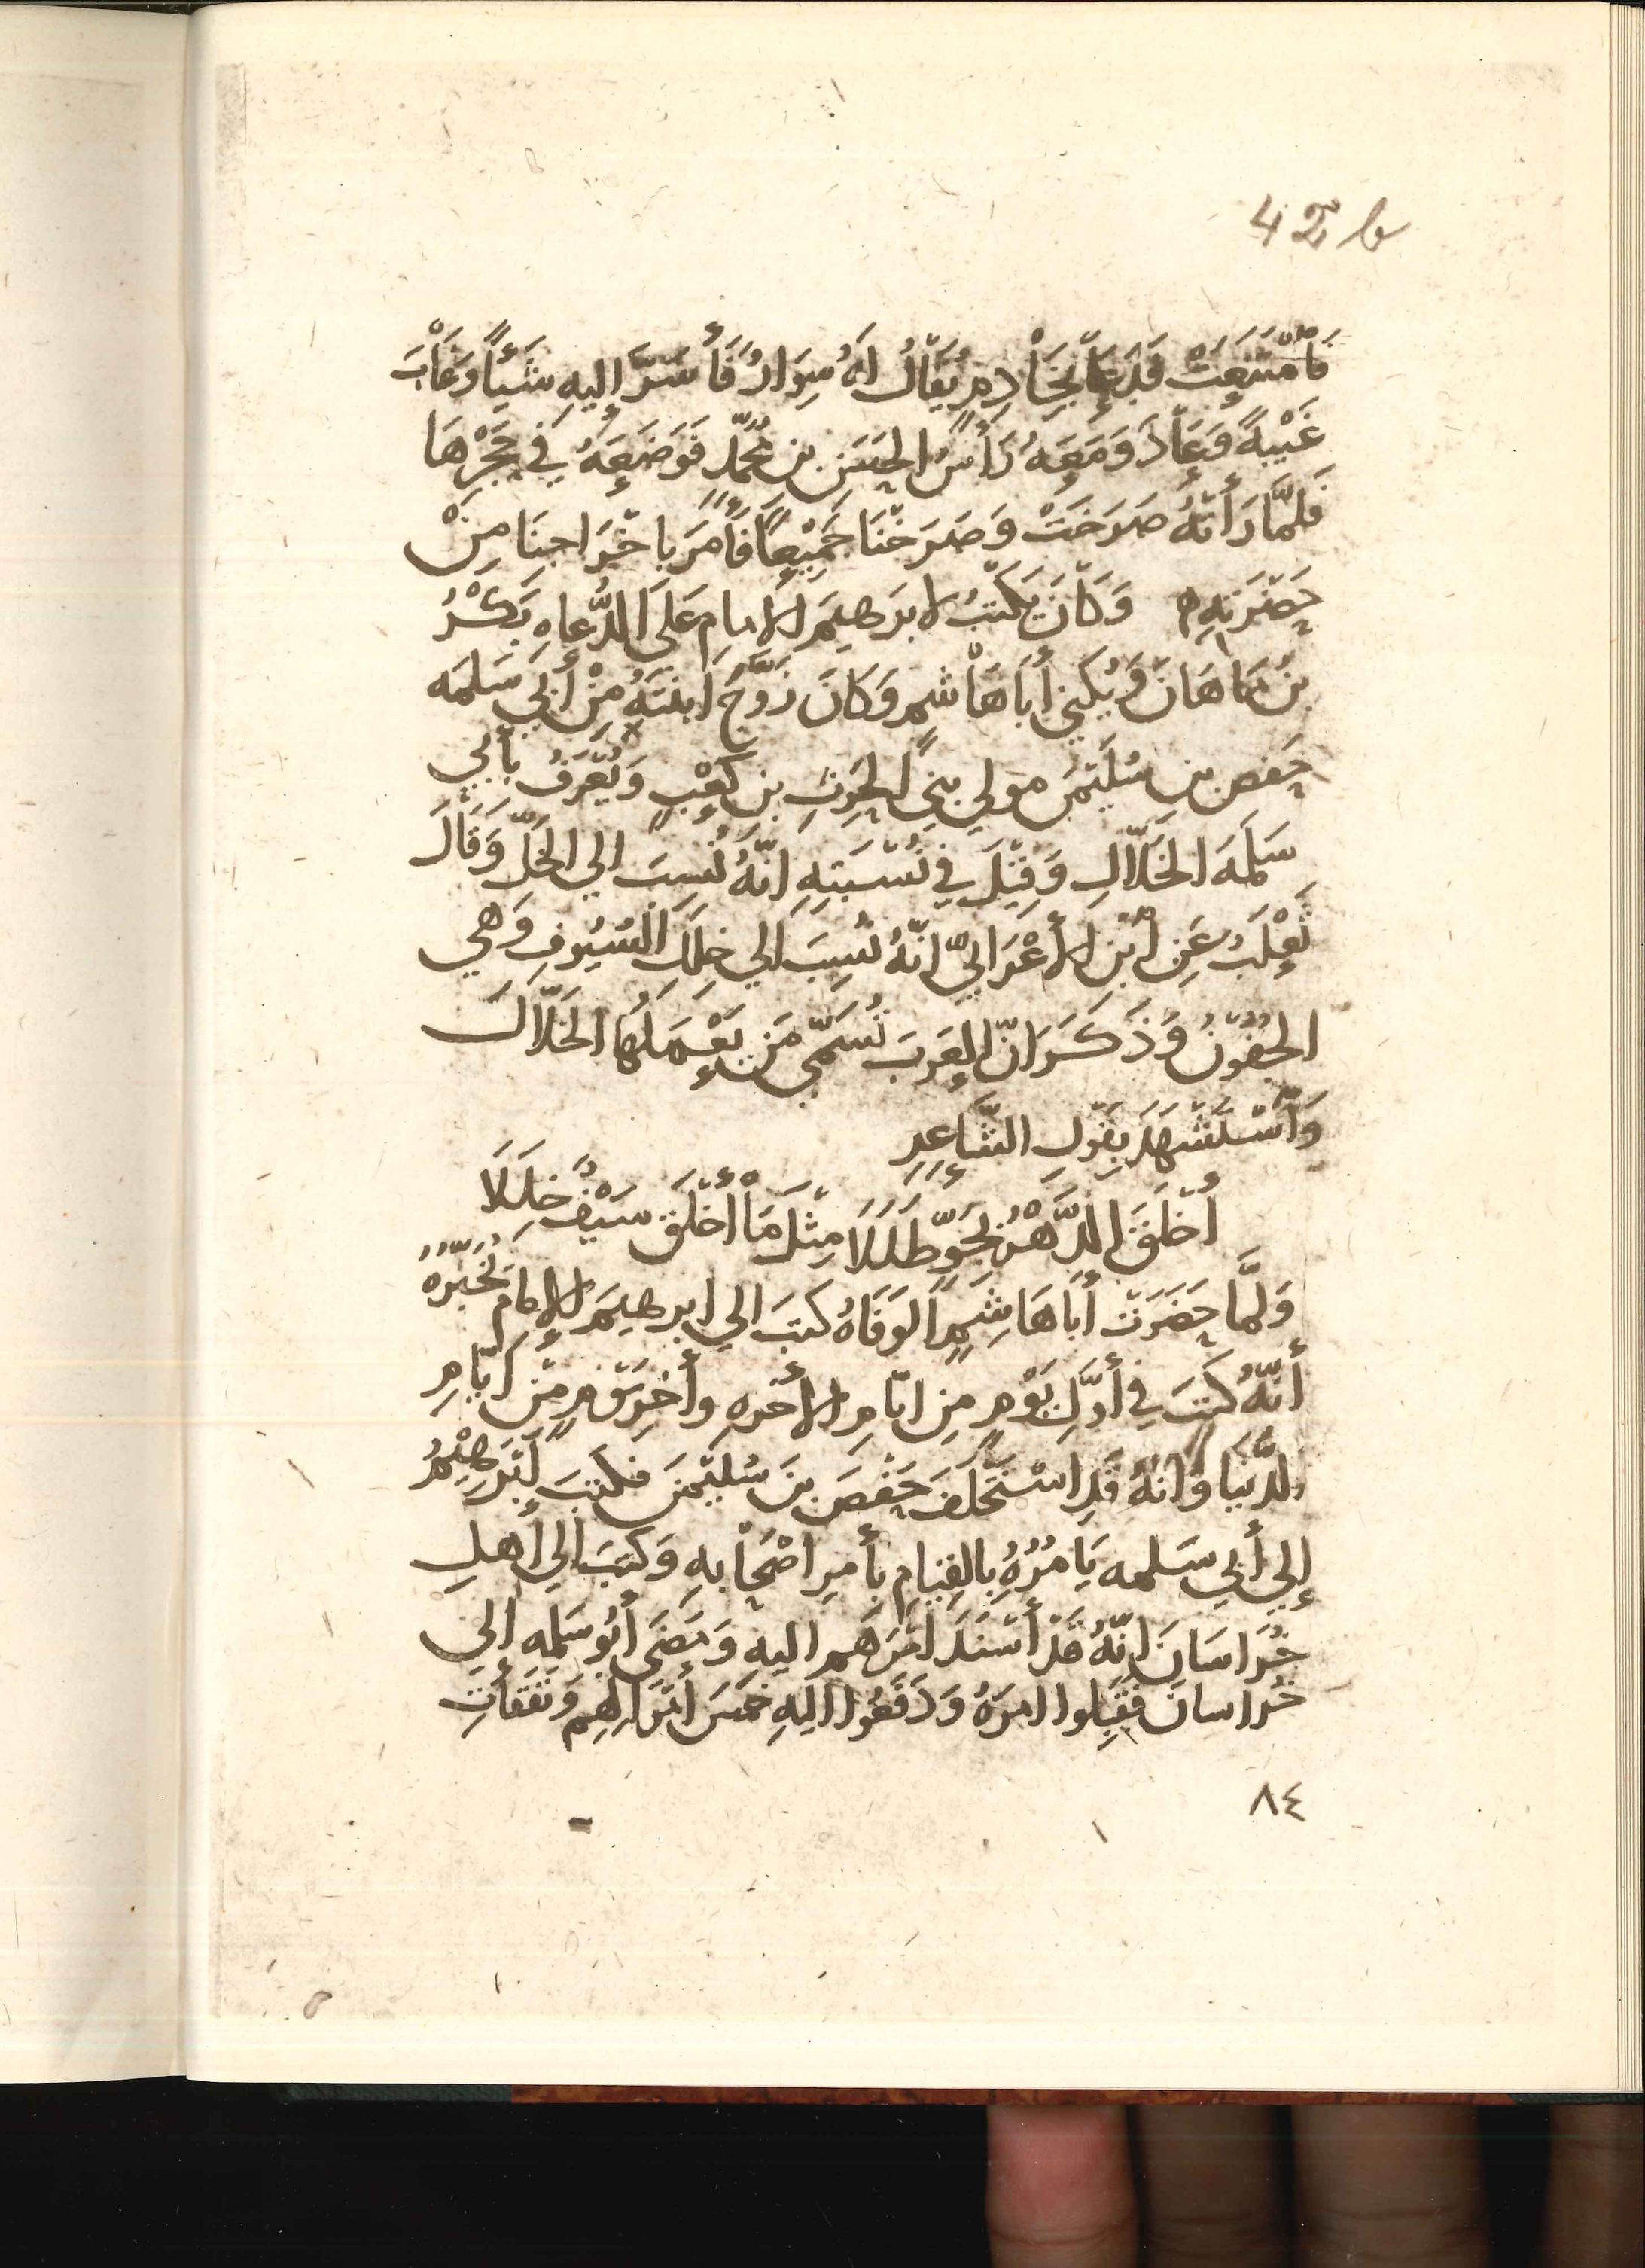 42 b
فَامْتَنَعَتْ فَدَعَا بِخَادِمٍ يُقَالُ لَهُ سِوَارُ فَأَسَرَّ إليهِ شَيْئًا وَغَابَ
غَيْبَةً وَعَادَ وَمَعَهُ رَأْسُ الحَسَنِ بنِ مُحَمَّدٍ فَوَضَعَهُ فِي حَجْرِهَا
فَلَمَّا رَأَتْهُ صَرَخَتْ وَصَرَخْنَا جَمِيْعًا فَأَمَرَ باخْرَاجِنَا مِنْ
حَضْرَتِهِ ه وَكَانَ يَكْتُبُ لابرهيمَ الامامِ عَلَى الدُّعاهِ بَكْرُ
بنُ مَاهَانَ وَيُكَنِي أَبَا هَاشِمٍ وَكَانَ زَوَّجَ ابنَتَهُ مِنْ أَبِي سَلَمَه
حَفصِ بنِ سُلَيْمَنَ مَولي بنِي الحرِثِ بنِ كَعْبٍ وَيُعْرَفُ بأَبي
سَلَمَهَ الخَلّالِ وَقِيْلَ فِي نُسْبَتِهِ انّهُ نُسِبَ الي الخَلِّ وَقَالَ
ثَعْلَبُ عَنِ ابْنِ الأعْرَابِيِّ انّهُ نُسِبَ الي خِلَلِ السُيُوفِ وَهي
الجُفُوْنُ وَذَكَرَ انّ العَرَبَ تُسَمِّي مَن يَعْمَلُهَا الخَلّالَ
وَاسْتَشْهَدَ بِقَوْلِ الشَّاعِرِ
أَخْلَقَ الدَّهْرُ بِجَوٍّ طَلَلَا مِثْلَ مَا أَخْلَقَ سَيْفٌ خِلَلَا
وَلَمَّا حَضَرَتْ أَبَا هَاشِمٍ الوَفَاهُ كتبَ الي ابرهيمَ الإمَامِ يُخْبِرُهُ
أنّهُ كتَبَ فِي أوَّلِ يَوْمٍ مِن ايّامِ الأخرهِ وأخِرِ يَوْمٍ مِنْ ايّامِ
الدُّنيَا وَانّهُ قَدِ اسْتَخْلَفَ حَفْصَ بنَ سُلَيْمَنَ فَكتَبَ إبْرَهِيْمُ
إلي أبي سَلَمه يَامُرُهُ بِالقِيَامِ بأمرِ اصْحَابِهِ وَكتَبَ إلي أهلِ
خُرَاسَانَ انّهُ قَدْ أسْنَدَ امْرَهم اليهِ وَمَضَى أبُو سَلَمه إلي
خُراسانَ فَقَبِلوا امرَهُ وَدَفَعُوا اليهِ خمسَ أمْوَالِهِم وَنَفَقَاتِ
٨٤